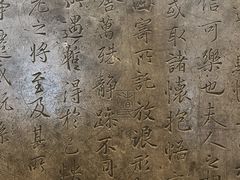 信可樂也夫人之
或取諸懷抱悟
因寄所託放浪形
萬殊靜躁不同
遇暫得於己快
之將至及其所
遷感慨係